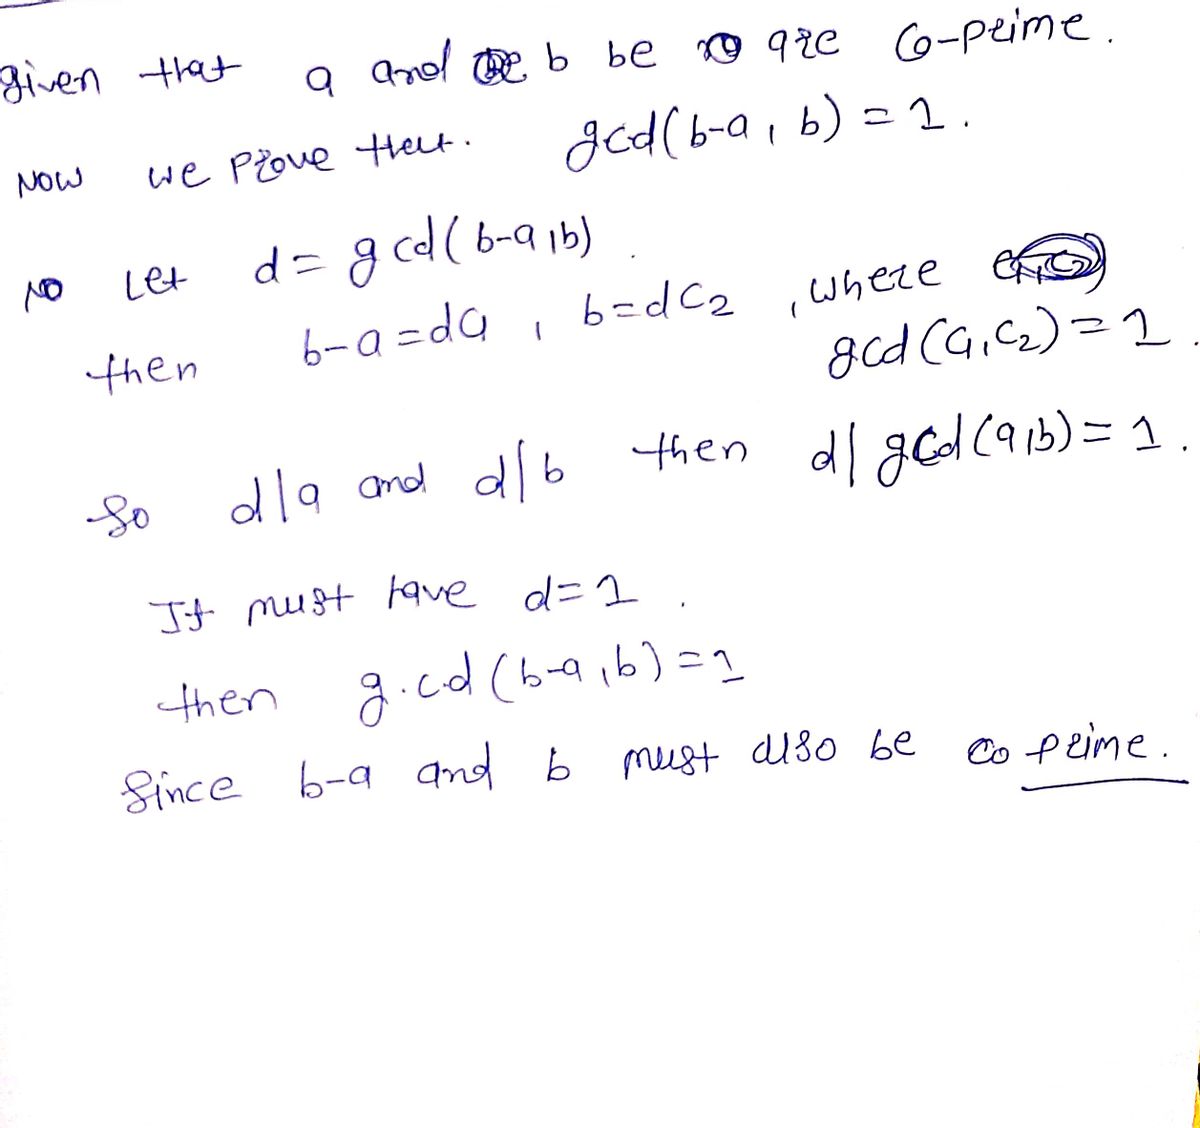 given that a and b be are Co-prime.
NOW we prove that. gcd(b-a, b) = 1.
NO Let d = gcd(b-a, b).
then b-a = dC₁, b = dC₂, where gcd(C₁, C₂) = 1.
So d|a and d|b then d| gcd(a,b) = 1.
It must have d=1.
then g.c.d (b-a, b) = 1
Since b-a and b must also be co prime.